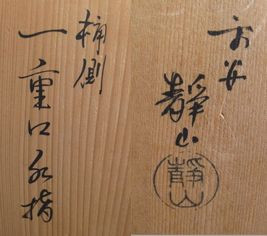 桶側
一重口水指
平安
靜山
靜山